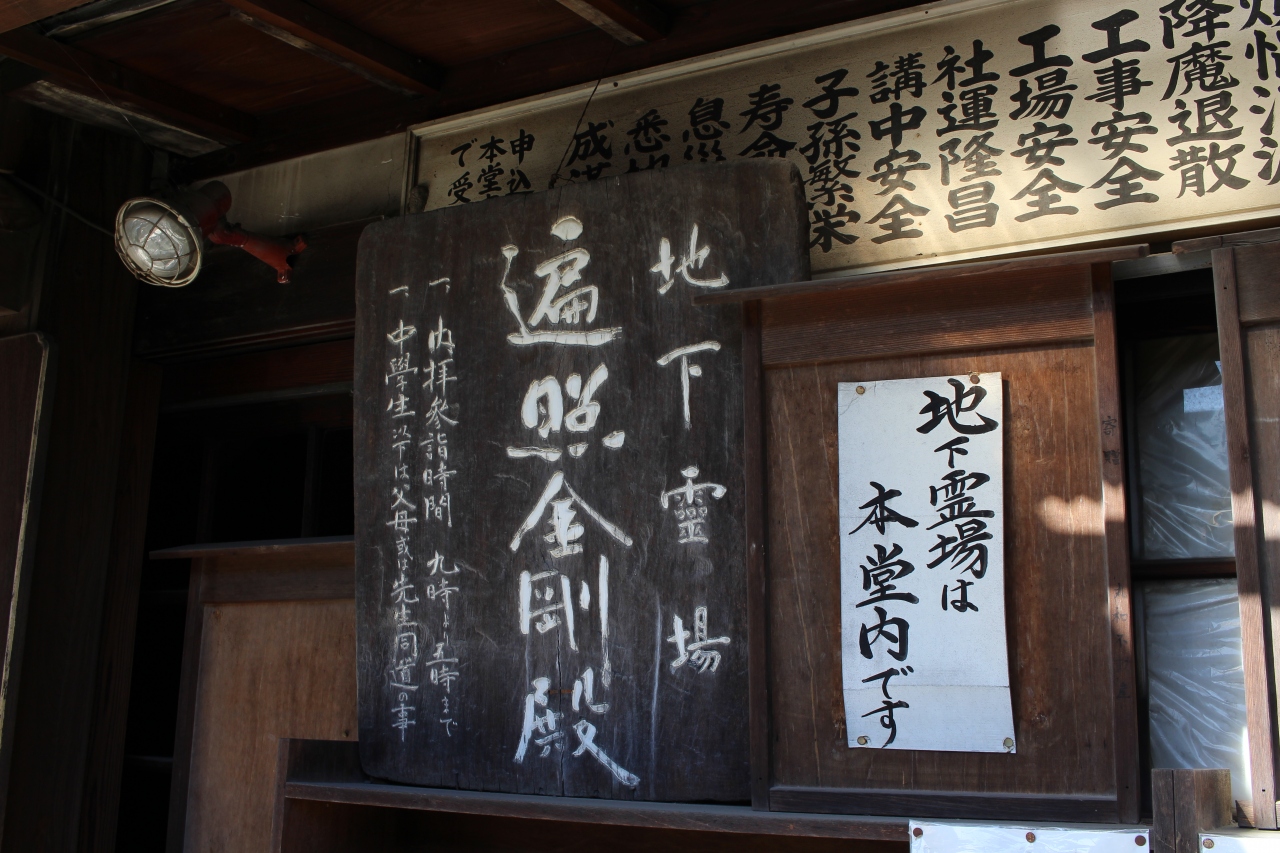 降魔退散
工事安全
工場安全
社運隆昌
講中安全
子孫繁栄
寿命
息災
悉地
成満
申込
本堂
で受
地下靈場
遍照金剛殿
一、内拝参詣時間 九時より五時まで
一、中學生以下は父母或は先生同道の事
地下霊場は
本堂内です